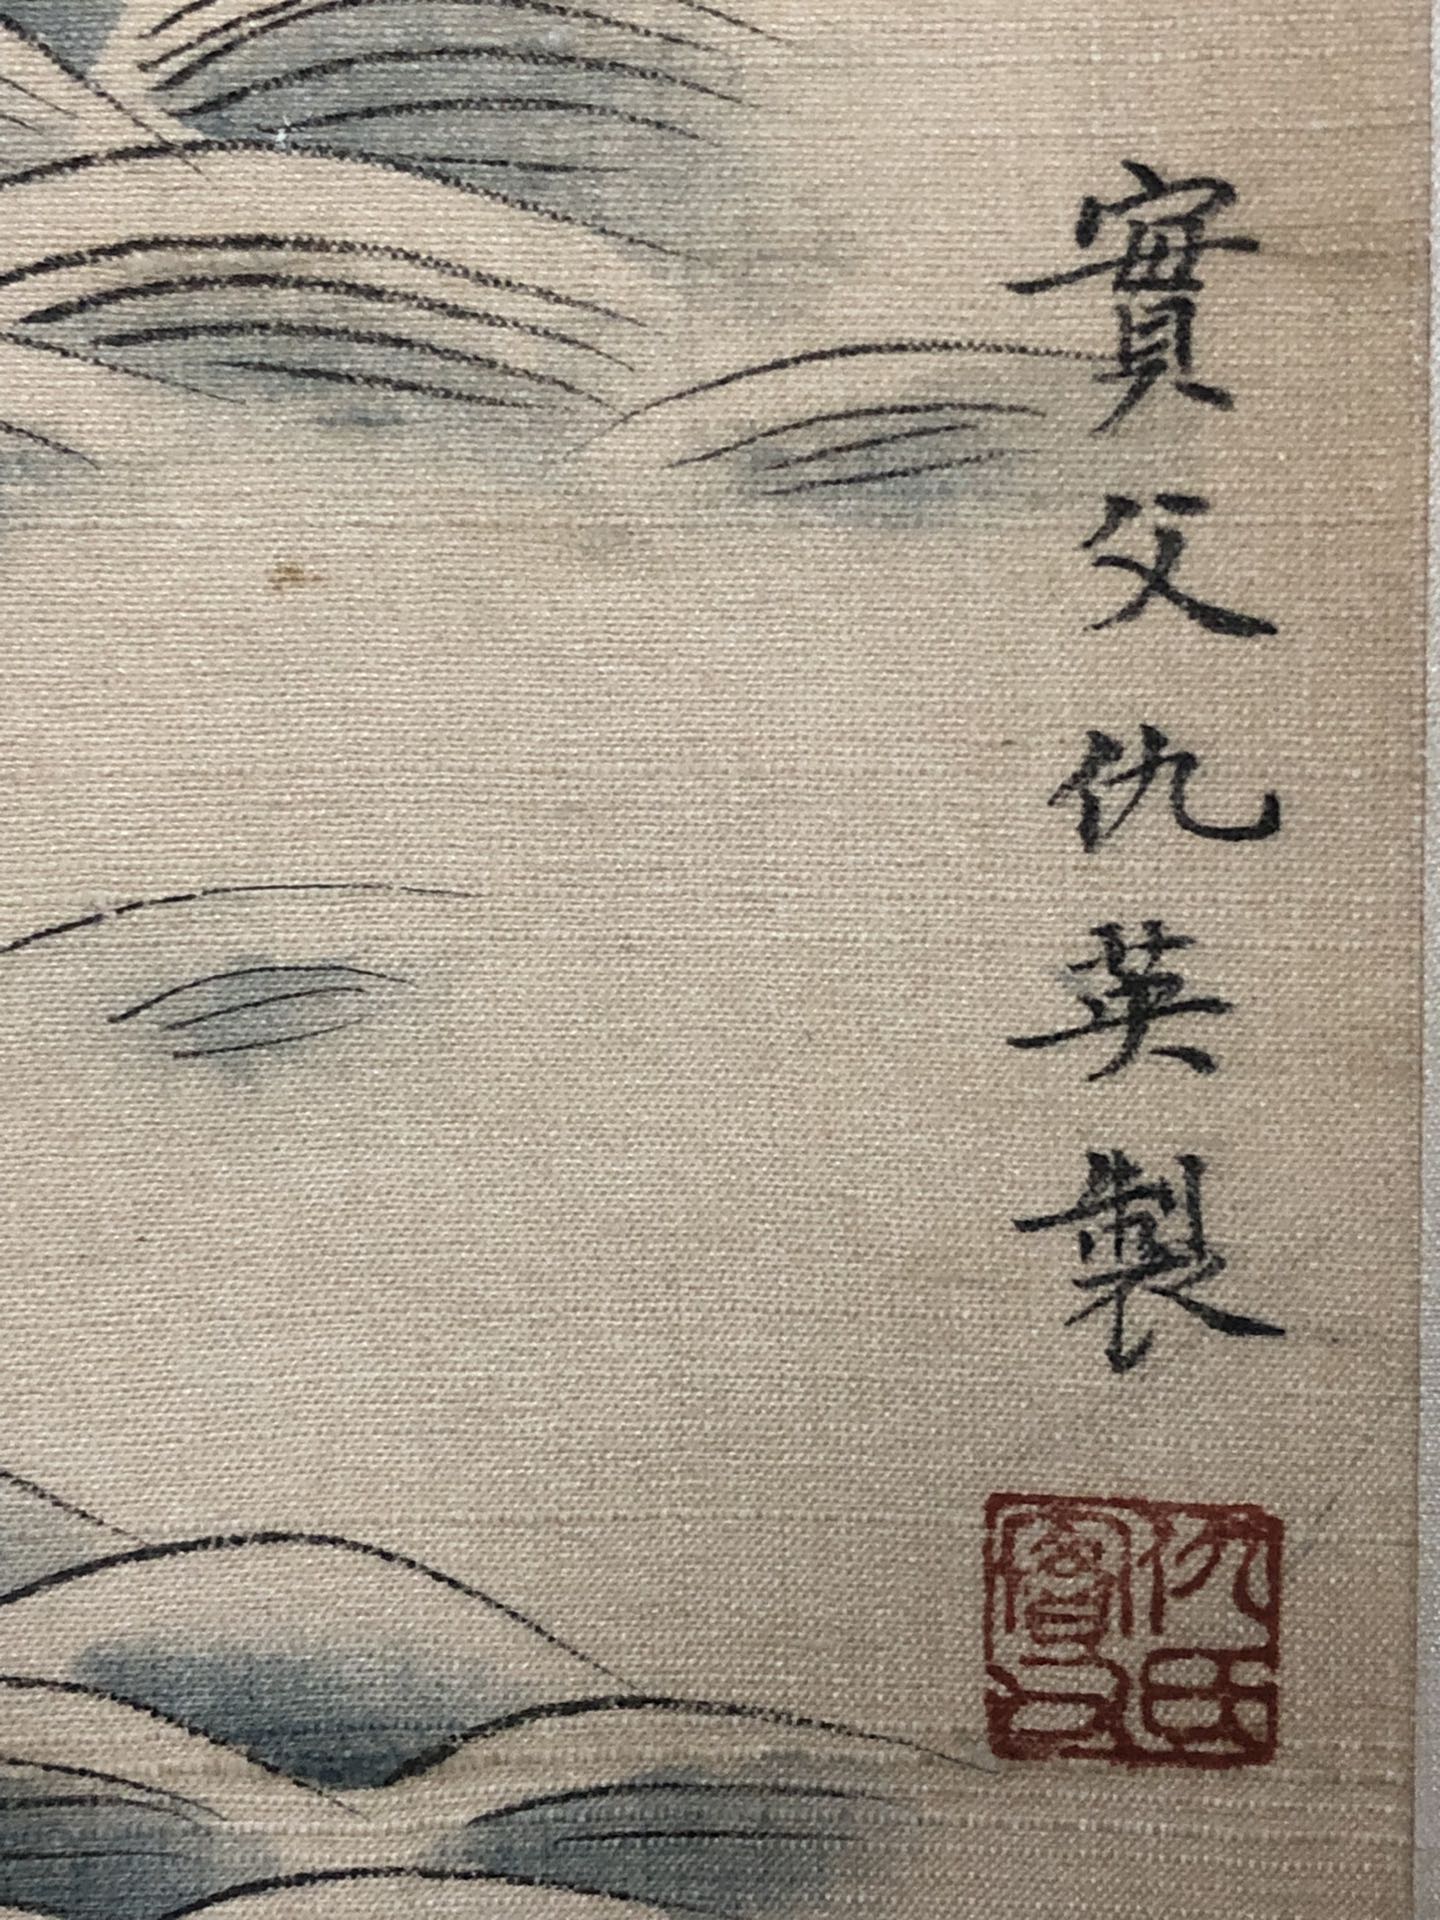 實父仇英製
仇氏
實父